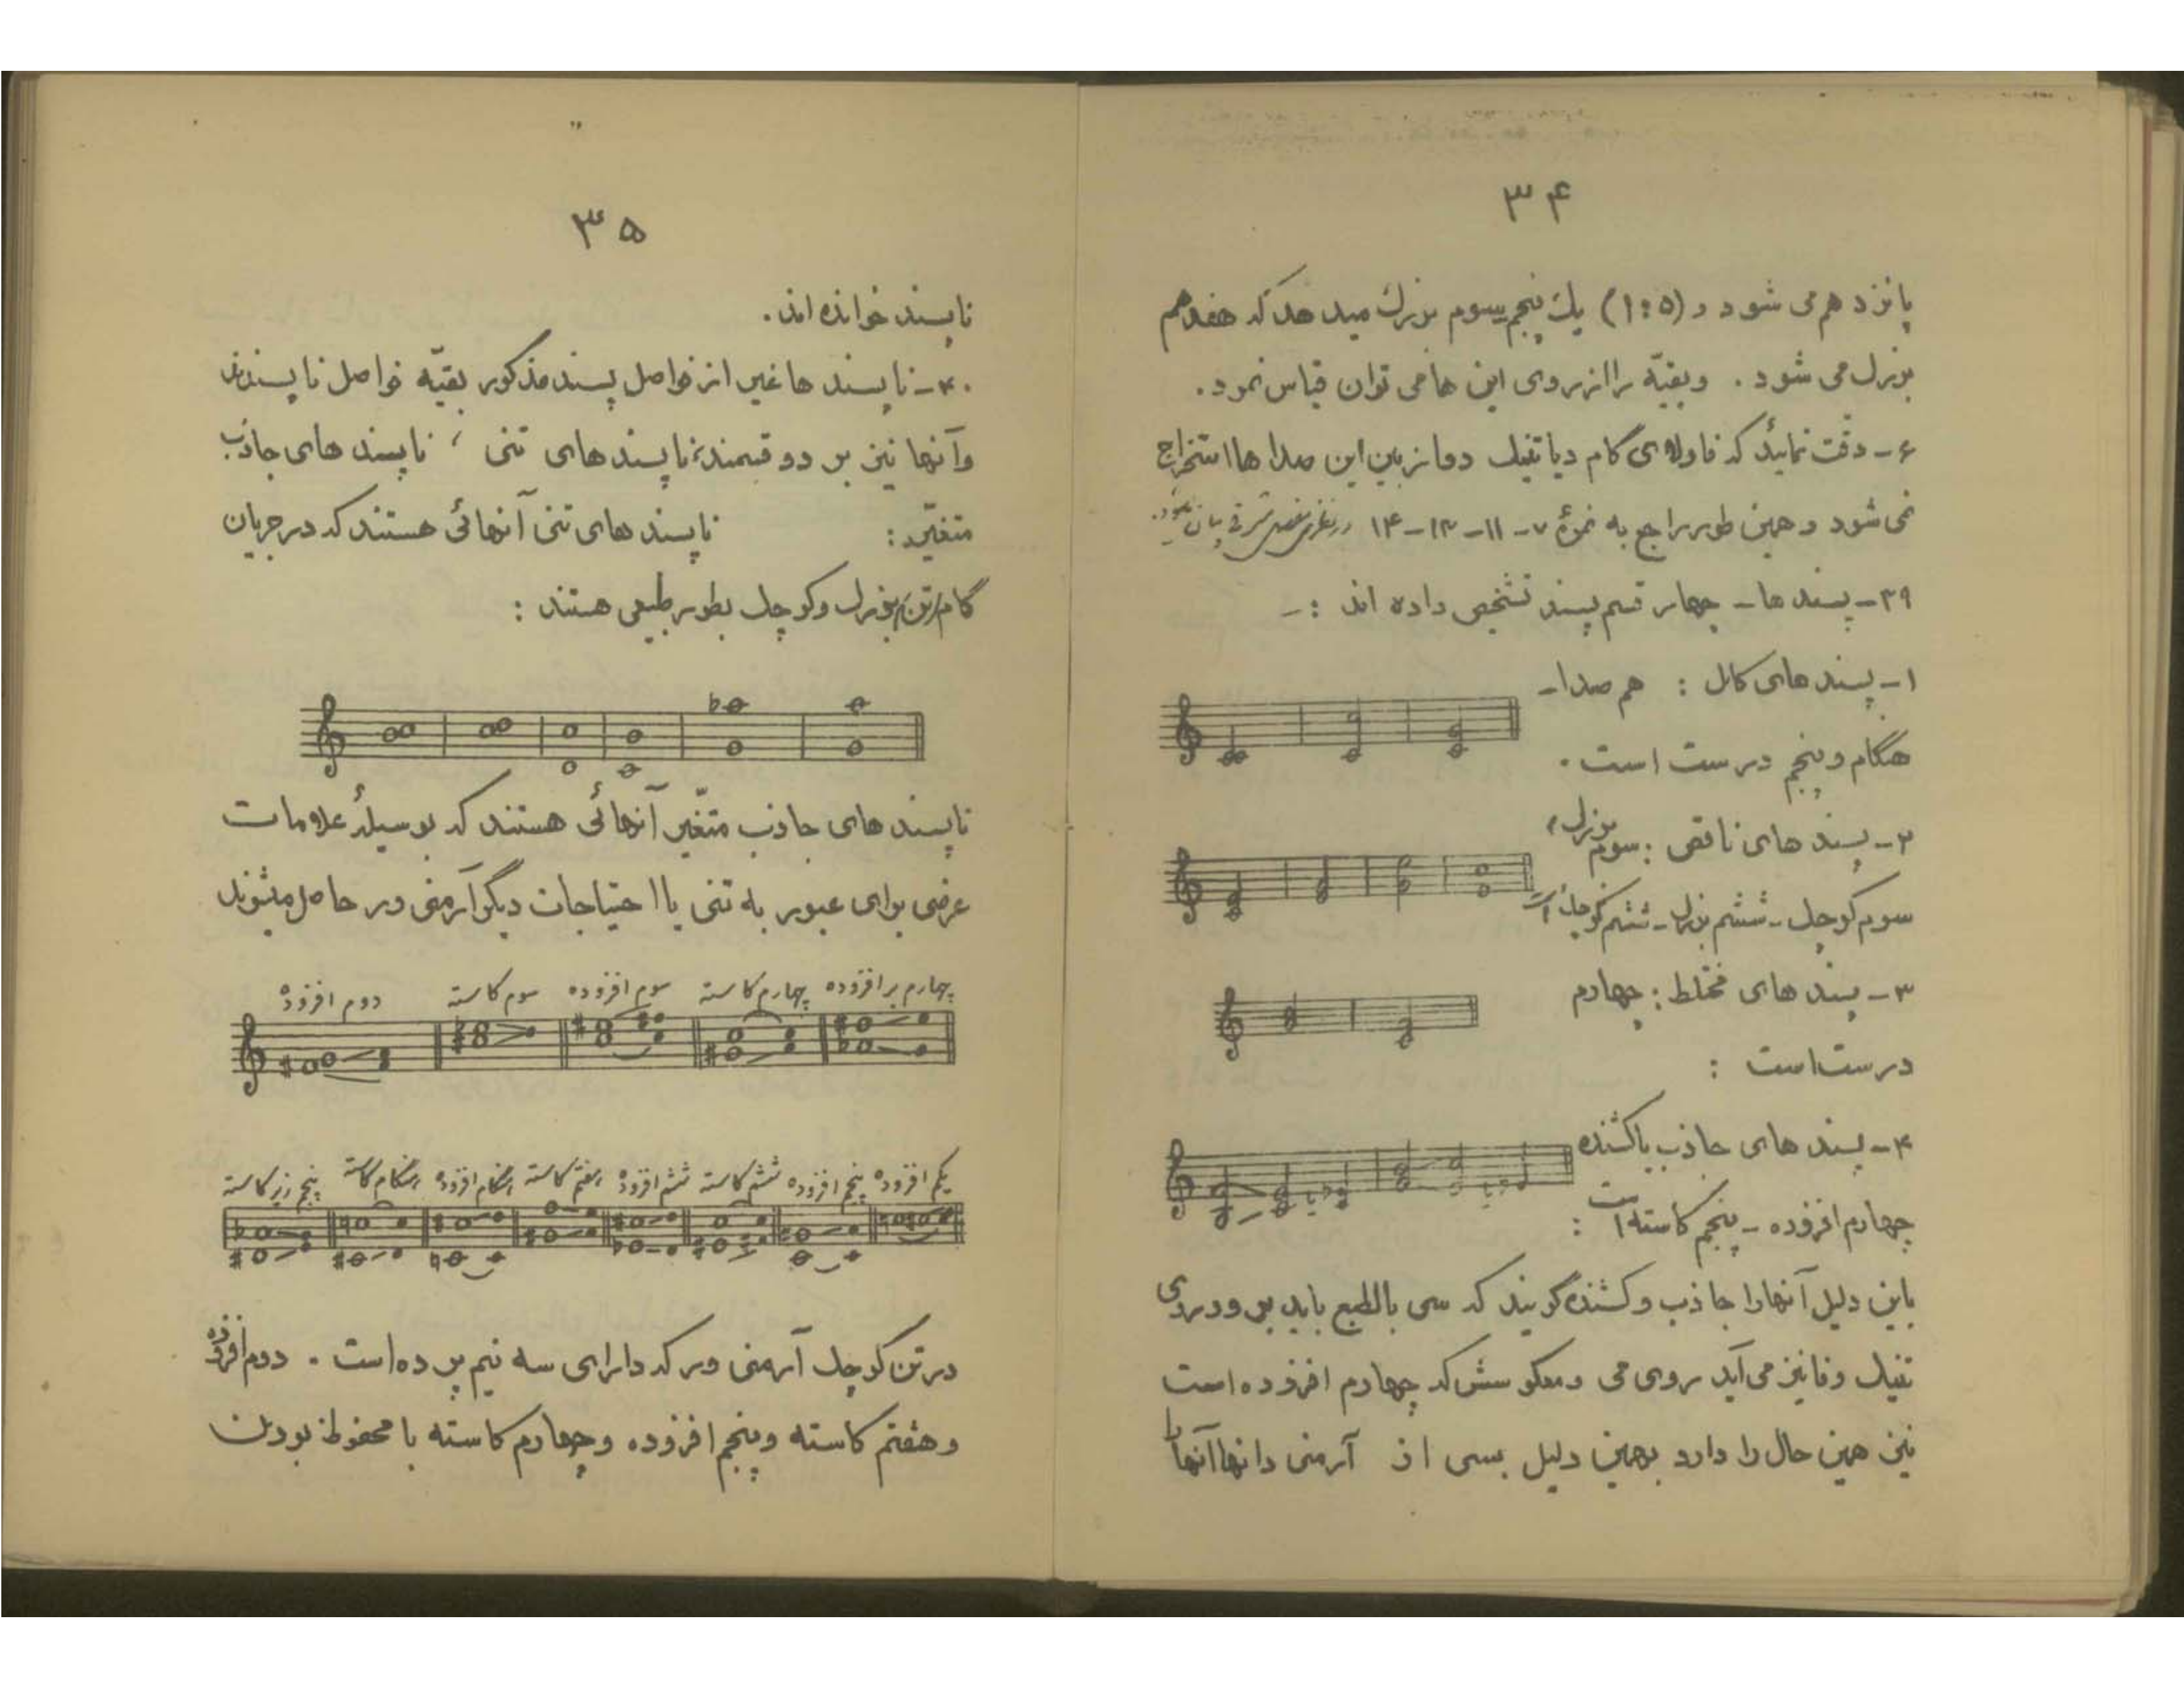 ۳۴
پانزدهم می شود و (۱:۵) یك پنجم سوم بزرك میدهد که هفدهم
بزرك می شود . وبقیّه را از روی این ها می توان قیاس نمود .
۶ـ دقّت نمائید که فا و لای گام دیاتنیك دو از بین این صدا ها استخراج
نمی شود و همین طور راجع به نمرهٔ ۷ـ ۱۱ـ ۱۳ـ ۱۴
۳۹ـ پسند ها ـ چهار قسم پسند تشخیص داده اند :ـ
۱ـ پسند های کامل : هم صدا ـ
هنگام و پنجم درست است .
۲ـ پسند های ناقص : سوم بزرك ،
سوم کوچك ـ ششم بزرك ـ ششم کوچك است
۳ـ پسند های مختلط : چهارم
درست است :
۴ـ پسند های جاذب یا کشنده
چهارم افزوده ـ پنجم کاسته است :
باین دلیل آنها را جاذب و کشنده گویند که سی بالطبع باید برود روی
تنیك و فا نیز می آید روی می و معکوسش که چهارم افزوده است
نیز همین حال را دارد بهمین دلیل بسی از آرمنی دانها آنها را
۳۵
ناپسند خوانده اند .
۴۰ـ ناپسند ها غیر از فواصل پسند مذکور بقیّه فواصل ناپسندند
و آنها نیز بر دو قسمند : ناپسند های تنی ، ناپسند های جاذب
متغیّر : ناپسند های تنی آنهائی هستند که در جریان
گام تن بزرك و کوچك بطور طبیعی هستند :
ناپسند های جاذب متغیّر آنهائی هستند که بوسیلهٔ علامات
عرضی برای عبور به تنی یا احتیاجات دیگر آرمنی ور حاصل میشوند
چهارم بر افزوده چهارم کاسته سوم افزوده سوم کاسته دوم افزوده
یکم افزوده پنجم افزوده ششم کاسته ششم افزوده هفتم کاسته هنگام افزوده هنگام کاسته پنجم زیر کاسته
در تن کوچك آرمنی ور که دارای سه نیم پرده است . دوم افزوده
و هفتم کاسته و پنجم افزوده و چهارم کاسته با محفوظ بودن